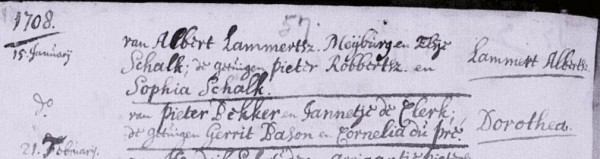 1708.
57
15. Januarij
van Albert Lammertsz. Meijburg en Elsje
Schalk; de getuigen Pieter Robbertsz. en
Sophia Schalk.
Lammert Albertsz.
do
van Pieter Bekker en Jannetje de Clerk;
de getuigen Gerrit Bason en Cornelia du pré
Dorothea.
21. Februarij.